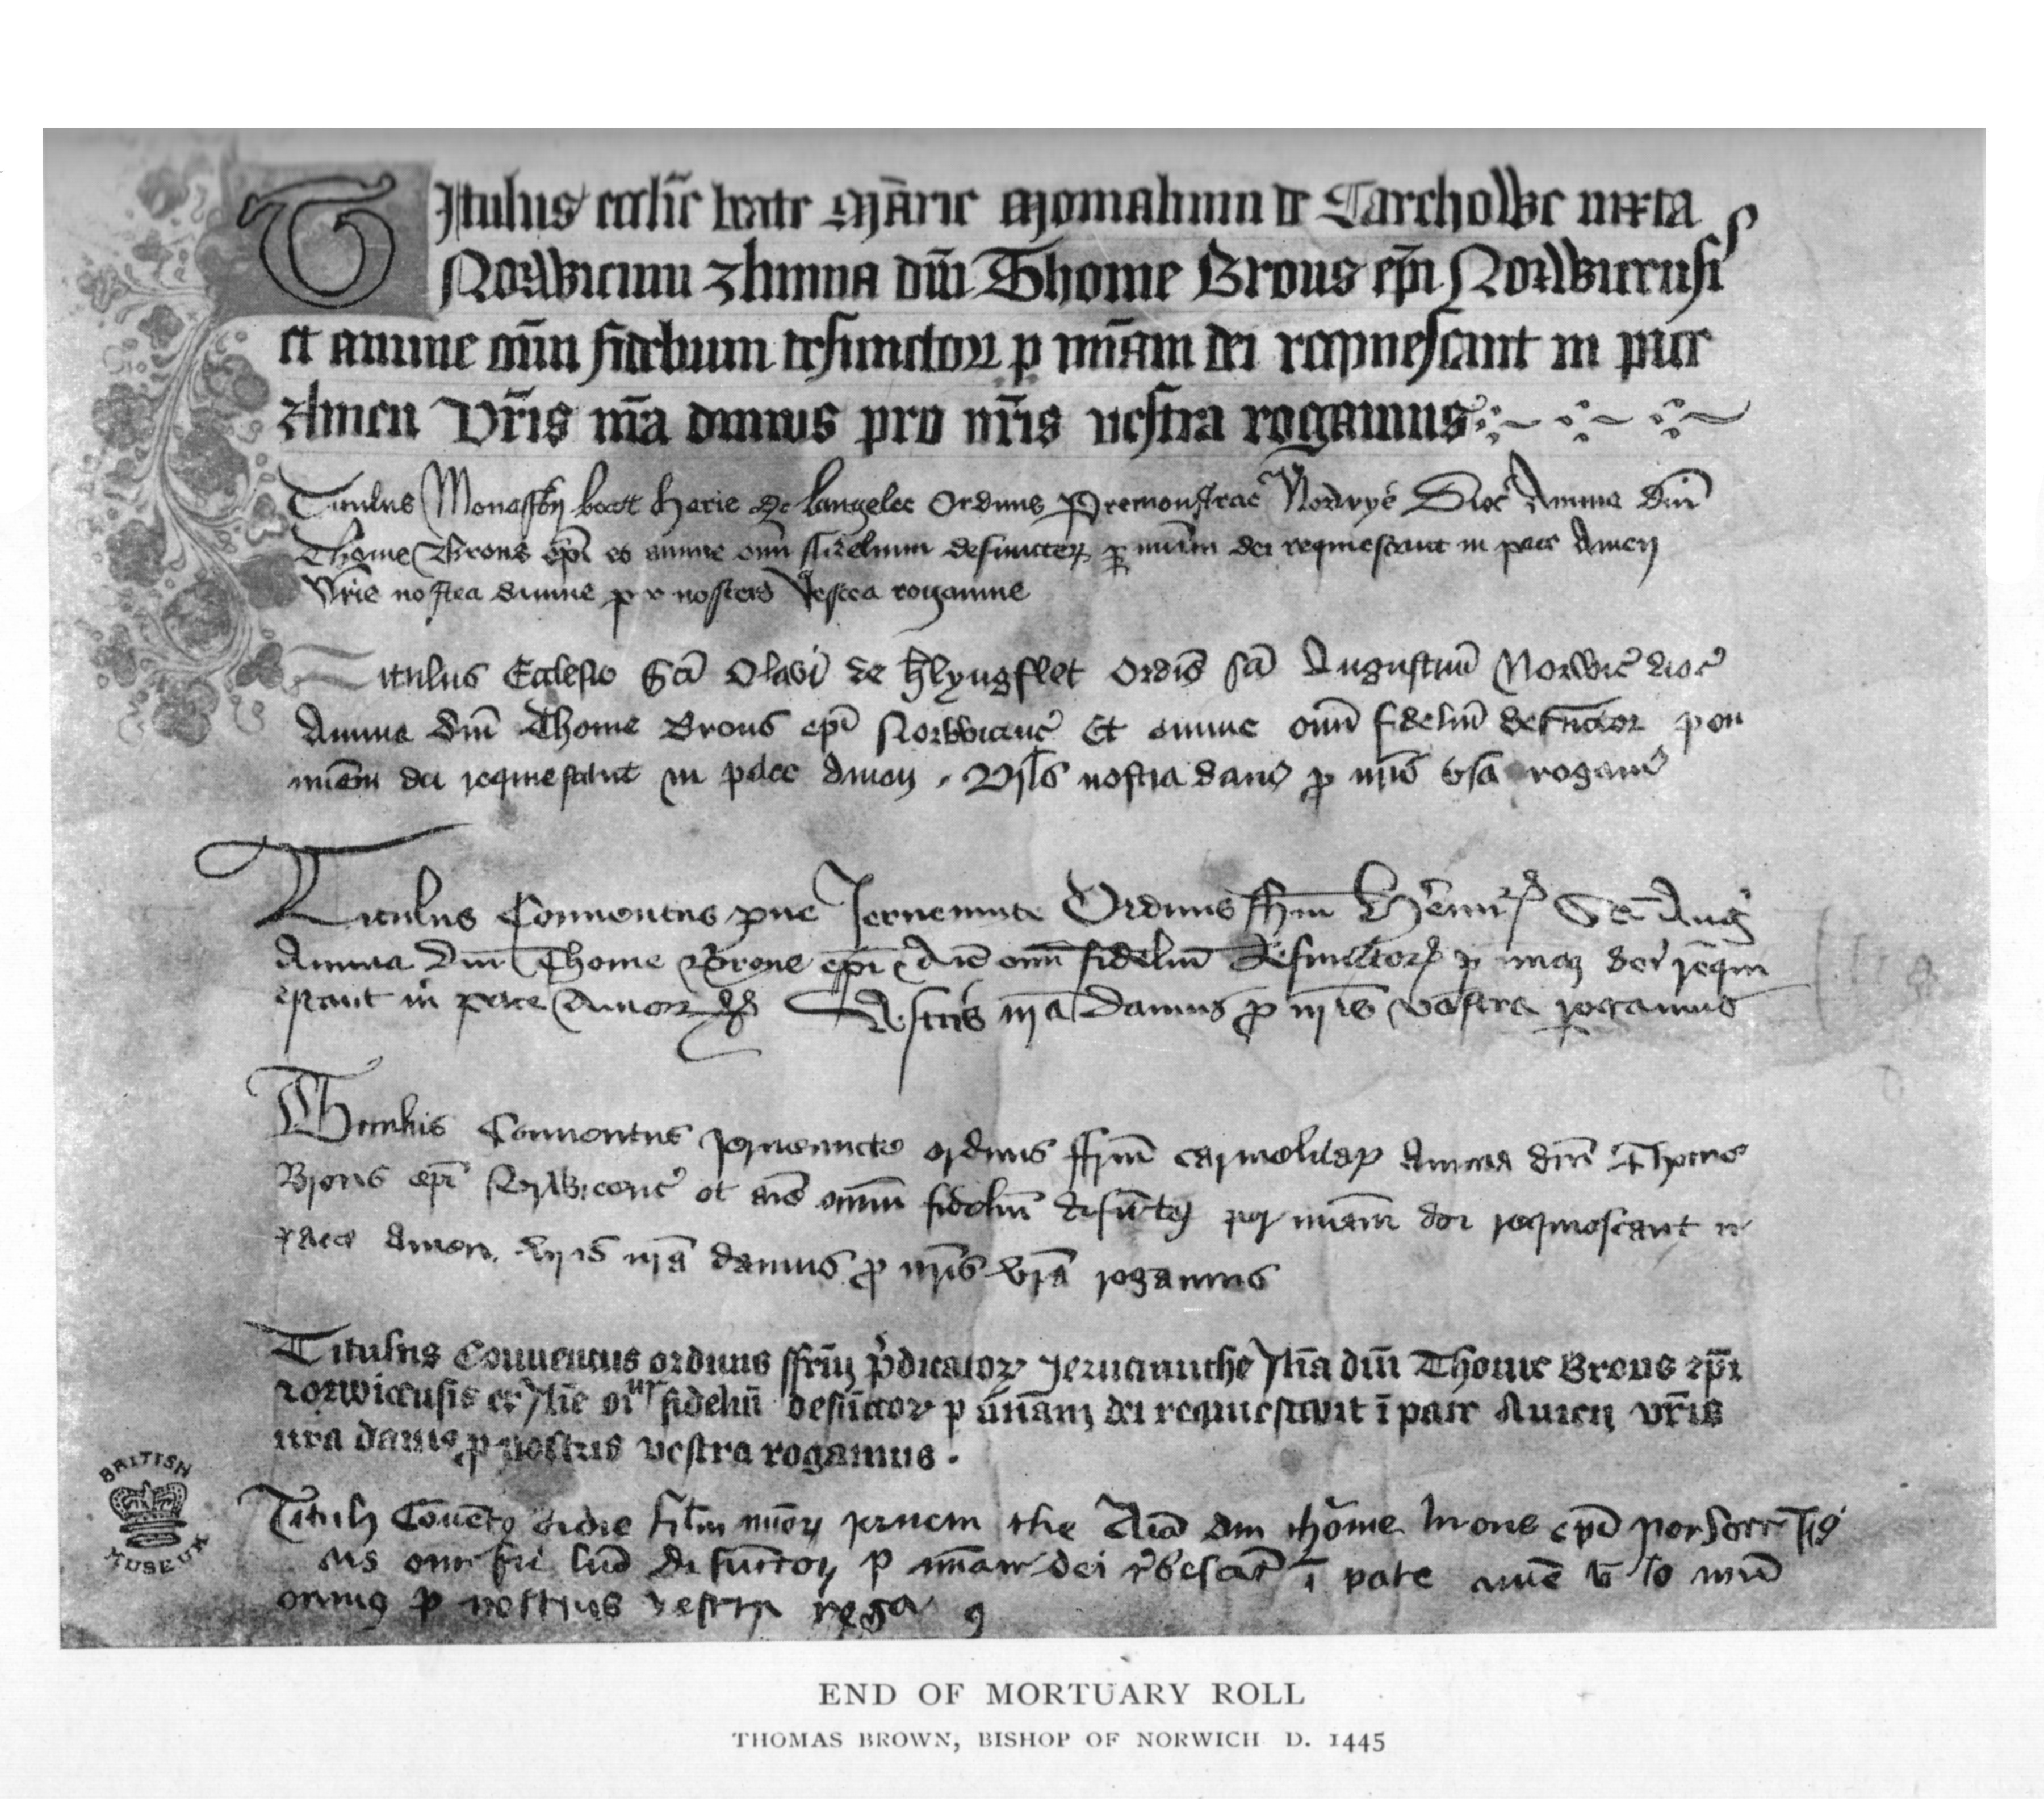 Titulus ecclie beate Marie Monialium de Carehowe iuxta
Norwicum Anima dni Thome Brouns epi Norwicensis
et anime oim fidelium defunctor p miam dei requiescant in pace
Amen Vris nra damus pro nris vestra rogamus
Titulus Monasterij beate Marie de langelee Ordinis Premonstrac Norwyc Dioc Anima dni
Thome Brons epi et anime oim fidelium defunctor p miam dei requiescant in pace Amen
Vris nostra damus p nostris vestra rogamus
Titulus Ecclesie Sci Olavi de herlyngflet Ordis sci Augustini Norwic dioc
Anima dni Thome Brons epi Norwicenc Et anime oim fidelium defunctor
miam dei requiescant in pace Amen Vris nostra dam p nris vsa rogam
Titulus Conventus Jernemute Ordinis ffrm Heremit Sci Aug
Anima dni Thome Brone epi Aie oim fidelium defunctor p miam dei requi
escant in pace Amen Vestris nra Damus p nris vestra rogamus
Titulus Conventus Jernemute ordinis ffrm carmelitar Anima dni Thome
Brons epi Norwicenc et aie omnium fidelium defunctor per miam dei requiescant i
pace Amen vris nra damus p nris vra rogamus
Titulus Conventus ordinis ffrm predicator Jernemuthe Aia dni Thome Brons epi
norwicensis et Aie fidelium defunctor p miam dei requiescant i pace Amen vris
nra damus p nostris vestra rogamus .
Titulus Covent ordie frm minor jernem the Aia dni thome brone epi
fidelium defunctor p miam dei i pace
p nostris vestra roga
BRITISH
MUSEUM
END OF MORTUARY ROLL
THOMAS BROWN, BISHOP OF NORWICH D. 1445